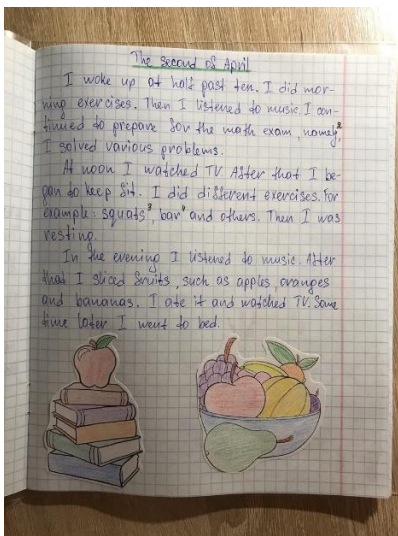 The second of April
I woke up at half past ten. I did mor-
ning exercises. Then I listened to music. I con-
tinued to prepare for the math exam, namely,²
I solved various problems.
At noon I watched TV. After that I be-
gan to keep fit. I did different exercises. For
example: squats³, bar⁴ and others. Then I was
resting.
In the evening I listened to music. After
that I sliced fruits, such as apples, oranges
and bananas. I ate it and watched TV. Some
time later I went to bed.